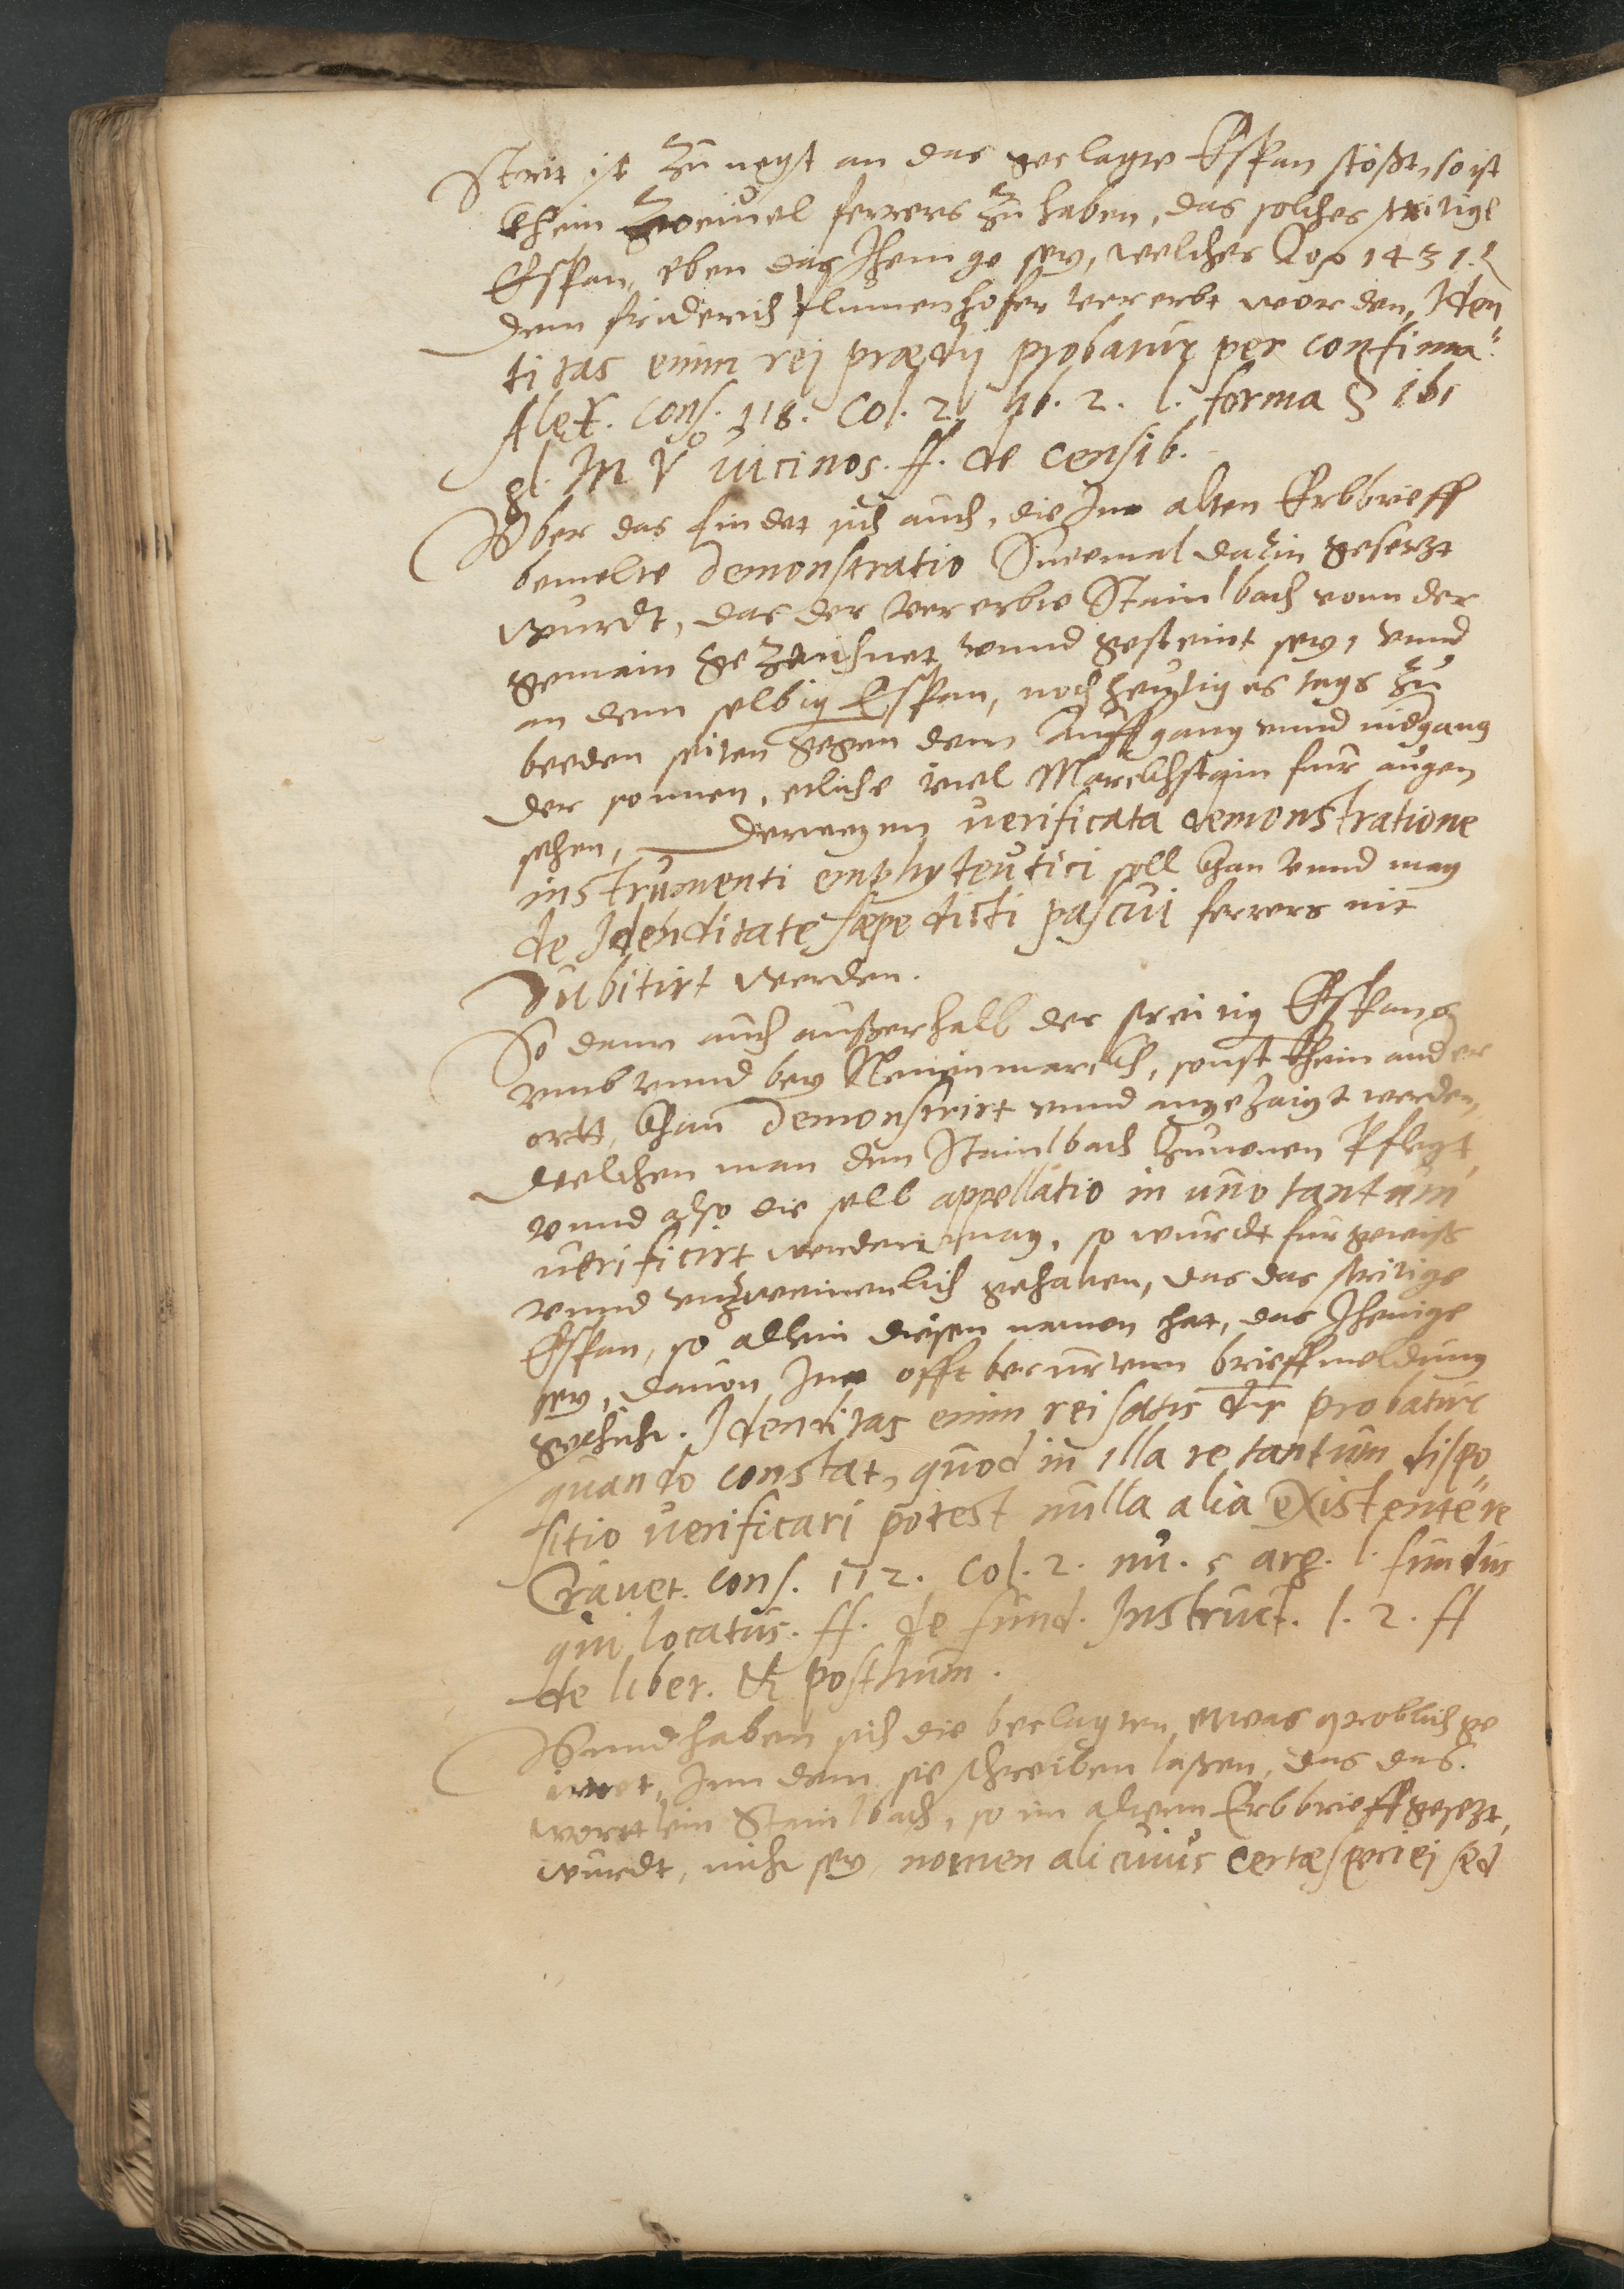 Strit ist zu negst an das geclagte Espan stößt, so ist
khein zweiuel ferrers zu haben, das solches stritige
Espan, eben das Jhenige sey, welches Aō 1431.
dem friderich flumenhofer vererbt worden, Iden
titas enim rej prædij probatur per confinia.
Alex. cons. 118. Col. 2. lib. 2. l. forma § ibi
gl. In Vᵒ uicinos. ff. de censib.
Vber das findet sich auch, die Inn alten Erbbrieff
bemelte demonstratio Sinnemal dahin gesetzt
wurdt, das der vererbte Stainlbach vonn der
gemain gezaichnet vnnd gesteint sey, vnnd
an dem selbig Espan, noch heutiges tags zu
beeden seiten gegen dem Auffgang vnnd nidgang
der sonnen, etliche viel Marckhstain fur augen
sehen, derwegen uerificata demonstratione
instrumenti emphyteutici soll khan vnnd mag
de Idenditate sæpe dicti pascui ferrers nit
dubitirt werden.
So dann auch außerhalb des streitig Espans
vmb vnnd bey Neuenmarckh, sonst khein ander
ortt, khan demonstrirt vnnd angezaigt werden,
Welchen man den Stainlbach zunenen Pflegt,
vnnd also die selb appellatio in uno tantum
uerificirt werden mag, so wurdt fur gewiß
vnnd vnzweiuenlich gehalten, das das stritige
Espan, so allein diesen namen hat, das Jhenige
sey, dauon Inn offt berurtem brieff meldung
geschicht. Idenditas enim rei satis dr probatur
quando constat, quod in illa re tantum dispo
sitio uerificari potest nulla alia existente re
Crauet. cons. 112. Col. 2. nu. 5 arg. l. fundus
qui locatus. ff. de fund. Instruct. l. 2. ff
de liber. & posthum.
Vnnd haben sich die beclagten etwas groblich ge
irret, Inn dem sie schreiben laßen, das das.
worttlein Stainlbach, so im altenn Erbbrieff gesezt,
wurdt, nicht sey nomen alicuius certæ speciei sed